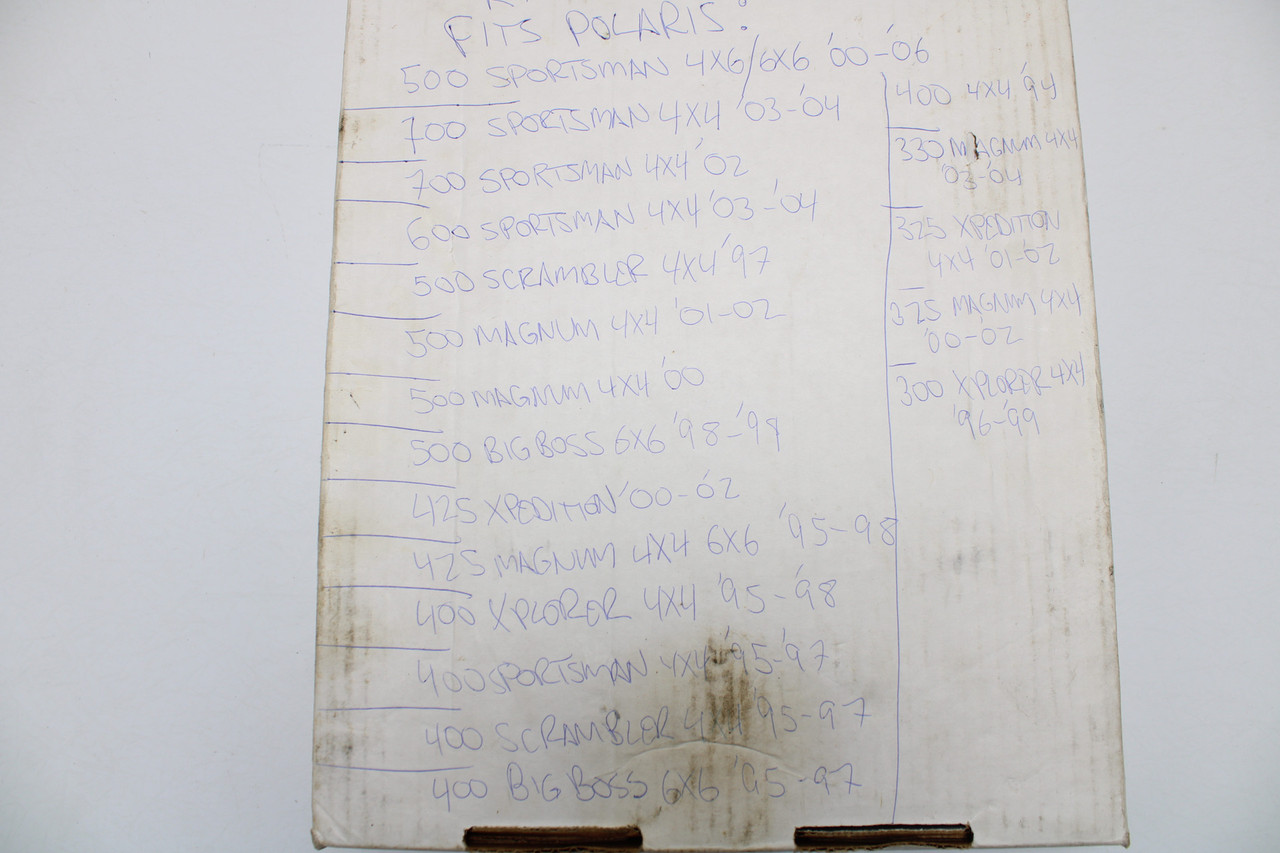 FITS POLARIS:
500 SPORTSMAN 4X6/6X6 '00-'06
700 SPORTSMAN 4X4 '03-'04
700 SPORTSMAN 4X4 '02
600 SPORTSMAN 4X4 '03-'04
500 SCRAMBLER 4X4 '97
500 MAGNUM 4X4 '01-02
500 MAGNUM 4X4 '00
500 BIG BOSS 6X6 '98-'99
425 XPEDITION '00-02
425 MAGNUM 4X4 6X6 '95-98
400 XPLORER 4X4 '95-'98
400 SPORTSMAN 4X4 '95-'97
400 SCRAMBLER 4X4 '95-97
400 BIG BOSS 6X6 '95-97
400 4X4 '94
330 MAGNUM 4X4
'03-'04
325 XPEDITION
4X4 '01-'02
325 MAGNUM 4X4
'00-02
300 XPLORER 4X4
'96-'99